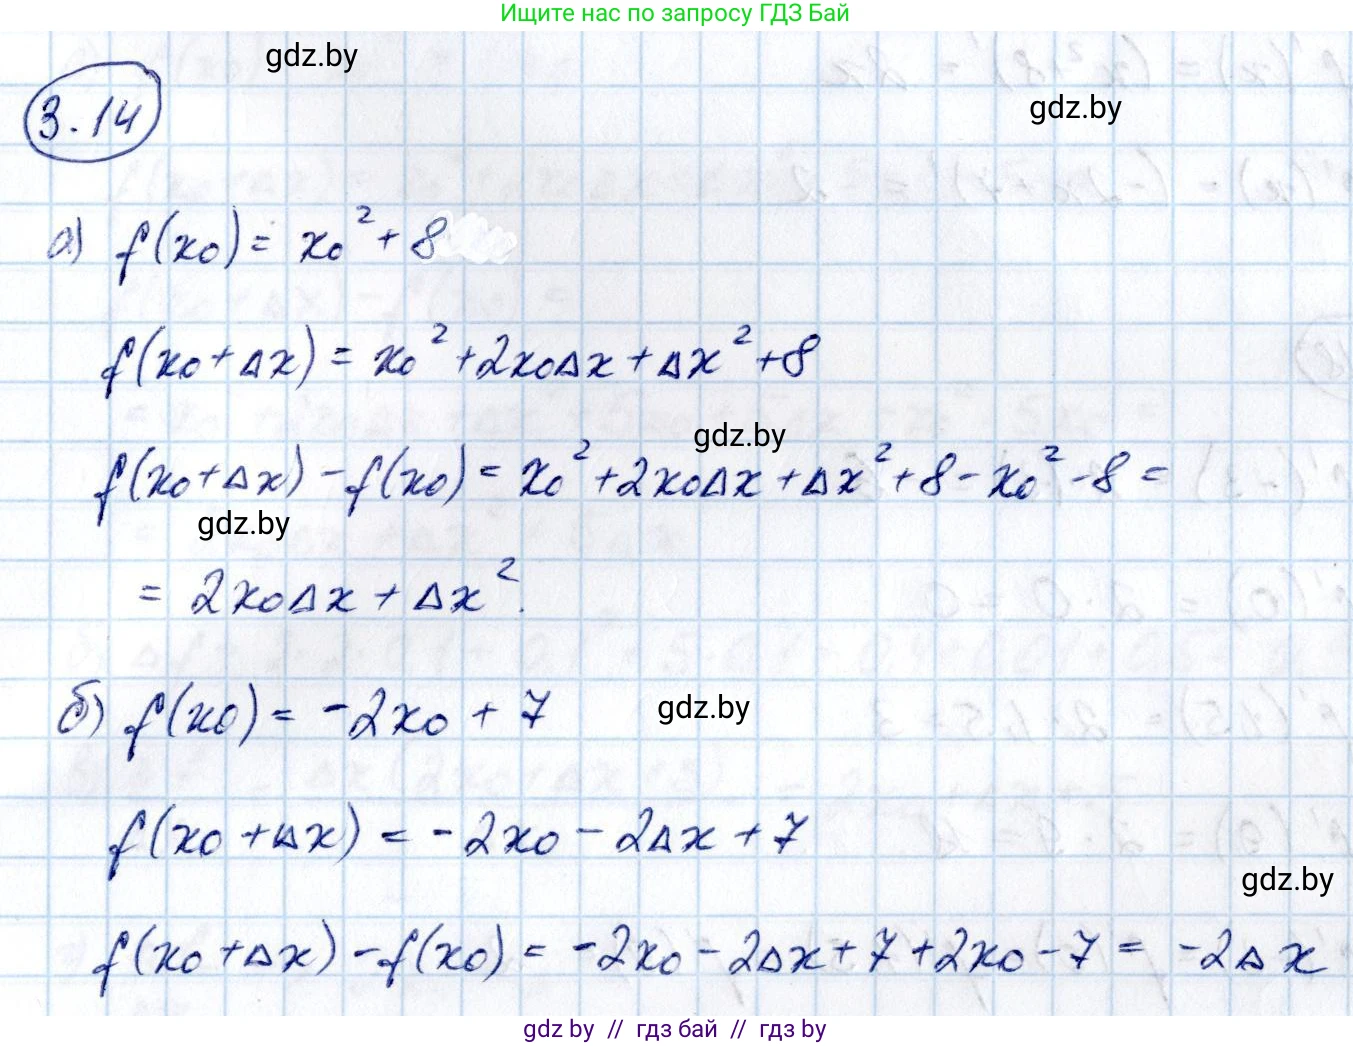 Ищите нас по запросу ГДЗ Бай
gdz.by
gdz.by
3.14
а) f(x₀) = x₀² + 8
f(x₀ + Δx) = x₀² + 2x₀Δx + Δx² + 8
gdz.by
f(x₀ + Δx) - f(x₀) = x₀² + 2x₀Δx + Δx² + 8 - x₀² - 8 =
gdz.by
= 2x₀Δx + Δx².
б) f(x₀) = -2x₀ + 7
gdz.by
f(x₀ + Δx) = -2x₀ - 2Δx + 7
gdz.by
f(x₀ + Δx) - f(x₀) = -2x₀ - 2Δx + 7 + 2x₀ - 7 = -2Δx
gdz by // гдз бай // гдз by